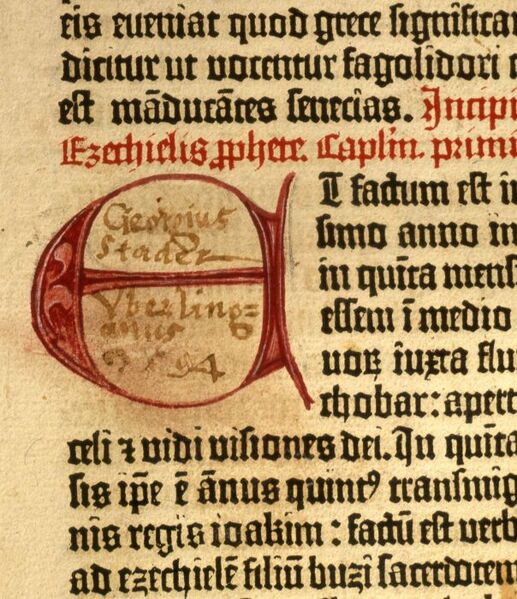 eis eveniat quod grece significa
dicitur ut vocentur fagolidori
est mãducãtes senecias. Incipi
Ezechielis pphete. Caplm. primũ
Georgius
Stader
Vberling=
anus
T factum est in
simo anno in
in quĩta mens
essem ĩ medio
uoꝝ iuxta flu
chobar: apert
celi ⁊ vidi visiones dei. In quĩta
sis ip̃e ẽ ãnus quintꝰ transmig
nis regis ioakim : factũ est verb
ad ezechielẽ filiũ buzi sacerdotem